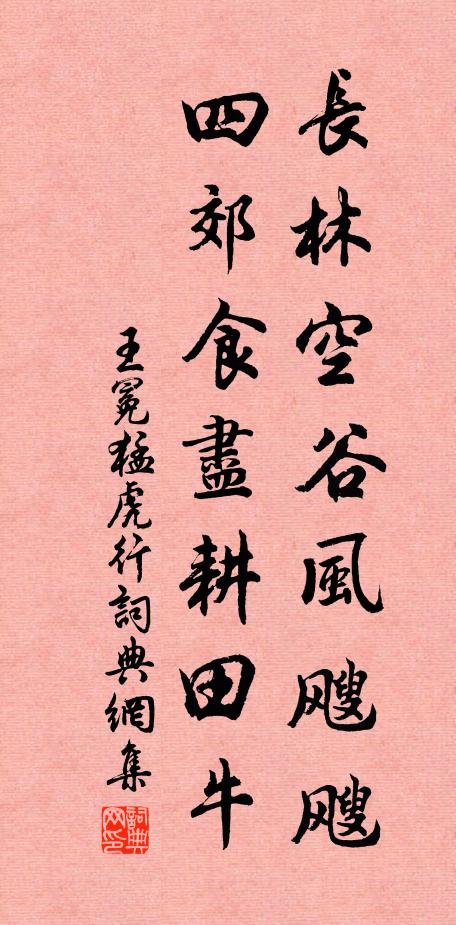 長林空谷風飕飕
四郊食盡耕田牛
王冕猛虎行詞典網集
詞典网印